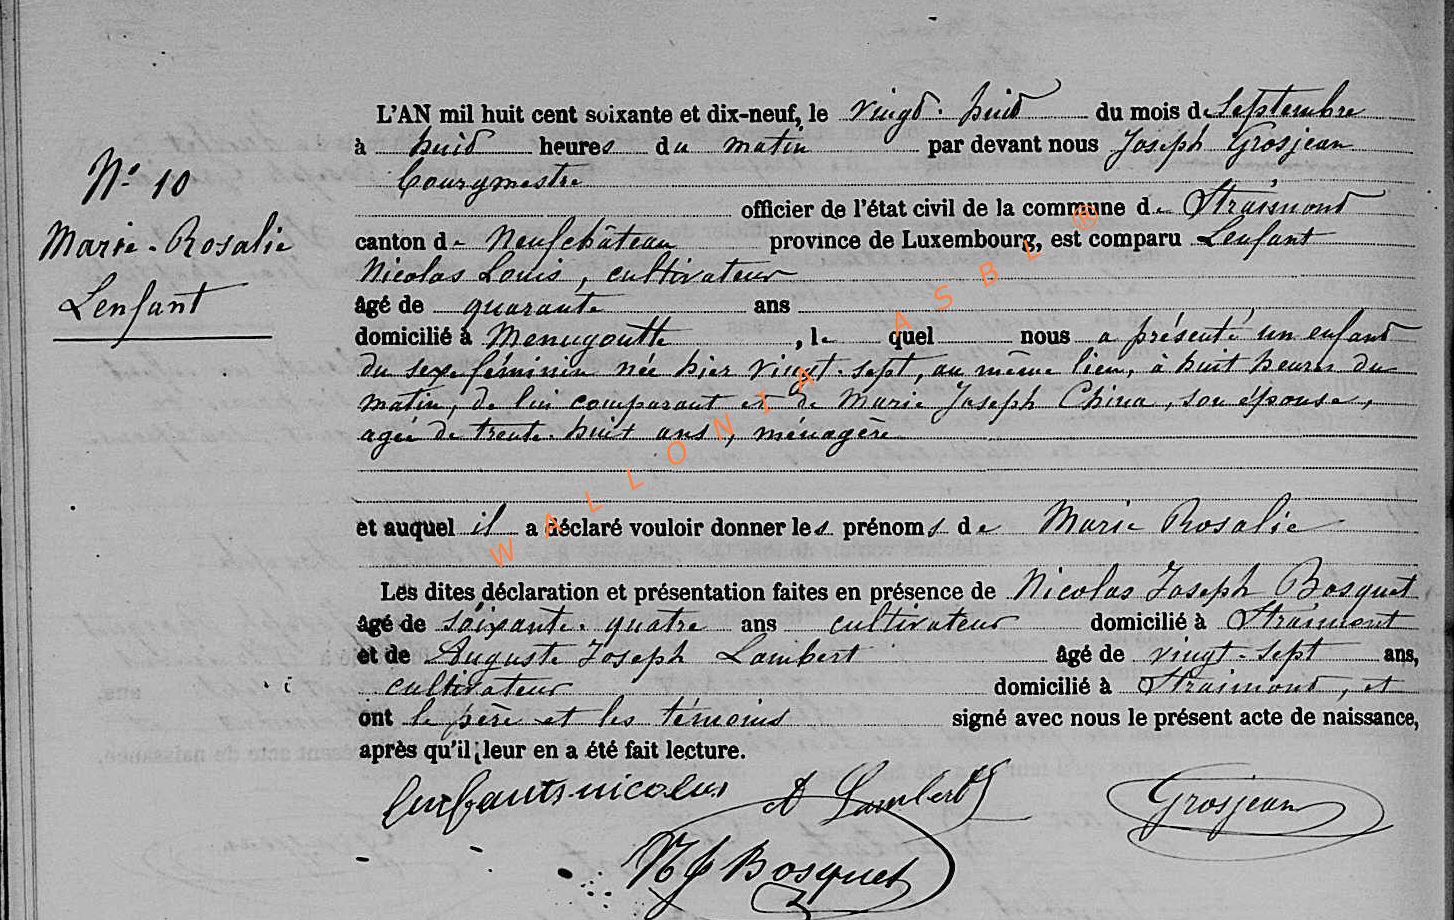 L'AN mil huit cent soixante et dix-neuf, le vingt-huit du mois de Septembre
à huit heures du matin par devant nous Joseph Grosjean
Bourgmestre
officier de l'état civil de la commune de Straimont
canton de Neufchâteau province de Luxembourg, est comparu Lenfant
Nicolas Louis, cultivateur
âgé de quarante ans
domicilié à Menugoutte, lequel nous a présenté un enfant
du sexe féminin née hier vingt-sept, au même lieu, à huit heures du
matin, de lui comparant et de Marie Joseph China, son épouse,
agée de trente-huit ans, ménagère
et auquel il a déclaré vouloir donner les prénoms de Marie Rosalie
Les dites déclaration et présentation faites en présence de Nicolas Joseph Bosquet
âgé de soixante-quatre ans cultivateur domicilié à Straimont
et de Auguste Joseph Lambert âgé de vingt-sept ans,
cultivateur domicilié à Straimont, et
ont le père et les témoins signé avec nous le présent acte de naissance,
après qu'il leur en a été fait lecture.
Nº 10
Marie-Rosalie
Lenfant
Lenfant nicolas A Lambert Grosjean
NJ Bosquet
WALLONIA ASBL ®